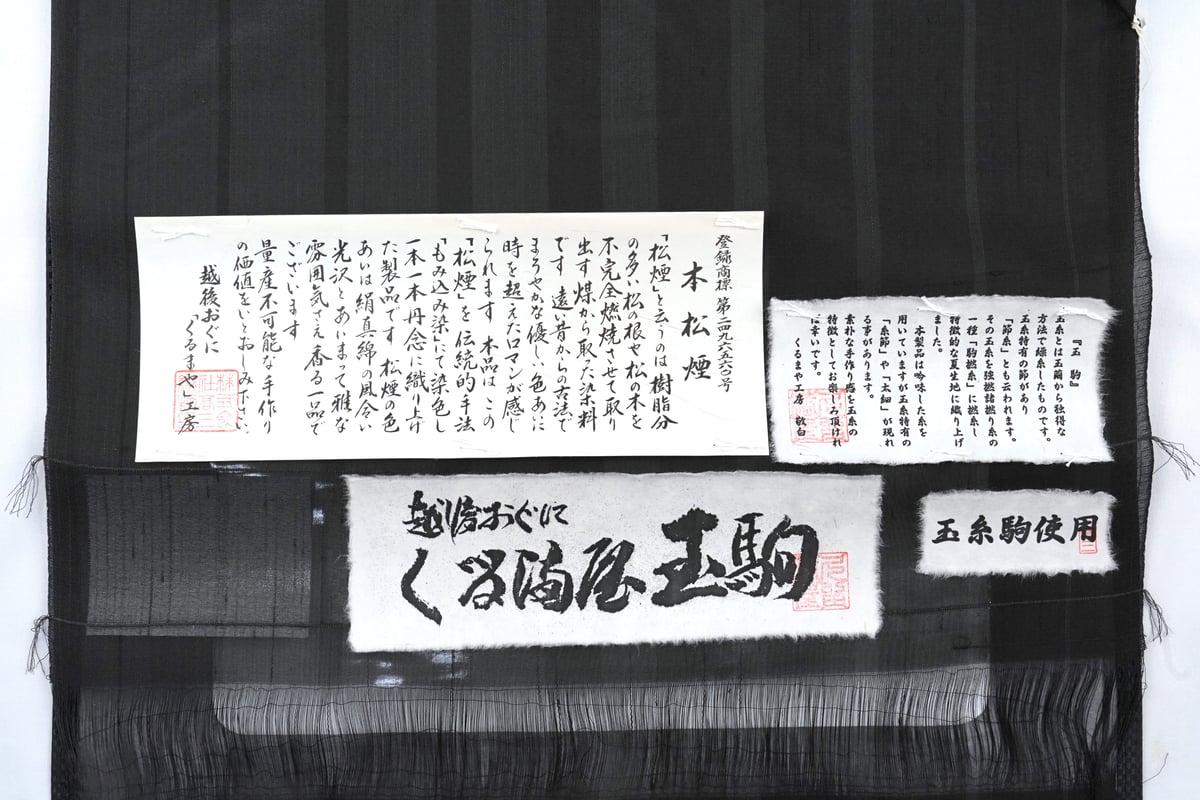 登録商標 第二四九六五六〇号
本松煙
「松煙」と云うのは 樹脂分
の多い松の根や松の木を
不完全燃焼させて取り
出す煤から取った染料
です 遠い昔からの古法で
まろやかな優しい色あいに
時を超えたロマンが感じ
られます 本品は この
「松煙」を 伝統的手法
「もみ込み染」にて染色し
一本一本丹念に織り上げ
た製品です 松煙の色
あいは絹真綿の風合い
光沢とあいまって雅な
雰囲気さえ香る一品で
ございます
量産不可能な手作り
の価値をいとおしみ下さい
越後おぐに
「くるまや」工房
『玉駒』
玉糸とは玉繭から独得な
方法で繰糸したものです。
玉糸特有の節があり
「節糸」とも云われます。
その玉糸を強撚諸撚り糸の
一種「駒撚糸」に撚糸し
特徴的な夏生地に織り上げ
ました。
本製品は吟味した糸を
用いていますが玉糸特有の
「糸節」や「太細」が現れ
る事があります。
素朴な手作り感を玉糸の
特徴としてお楽しみ頂けれ
ば幸いです。
くるまや工房 敬白
越後おぐに
くるま屋 玉駒
玉糸駒使用